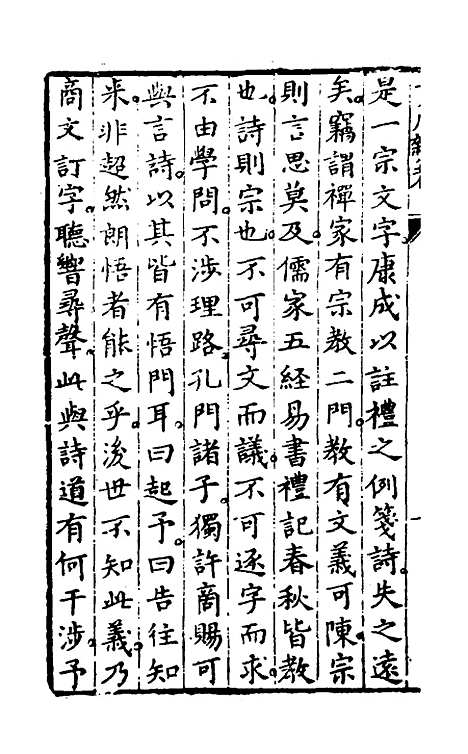 是一宗文字康成以註禮之例箋詩失之遠
矣竊謂禪家有宗教二門教有文義可陳宗
則言思莫及儒家五經易書禮記春秋皆教
也詩則宗也不可尋文而議不可逐字而求
不由學問不涉理路孔門諸子獨許商賜可
與言詩以其皆有悟門耳曰起予曰告往知
來非超然朗悟者能之乎後世不知此義乃
商文訂字聽響尋聲此與詩道有何干涉予